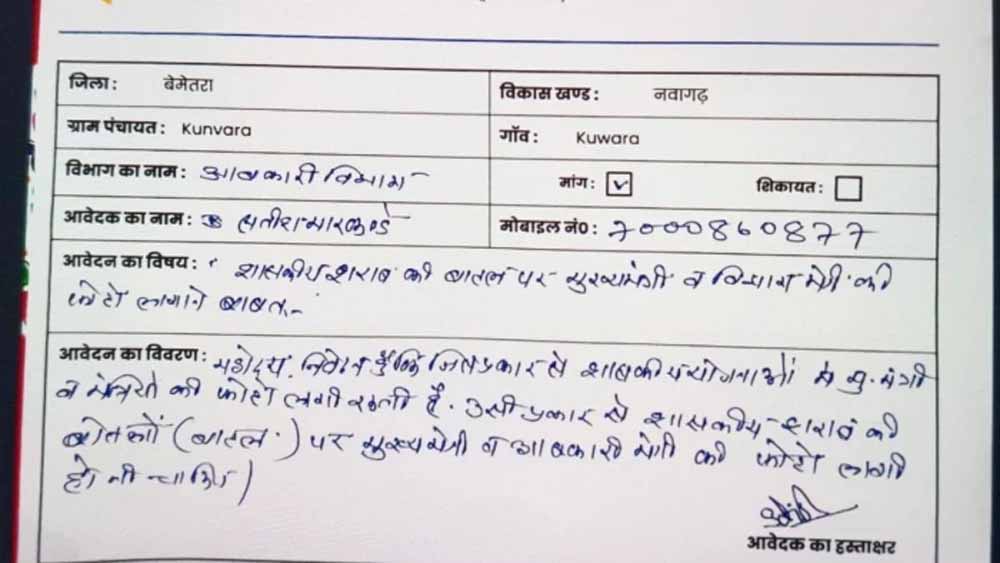 जिला: बेमेतरा विकास खण्ड: नवागढ़
ग्राम पंचायत: Kunvara गॉव: Kuwara
विभाग का नाम: आबकारी विभाग मांग: ☑ शिकायत: ☐
आवेदक का नाम: सतीश मारकण्डे मोबाइल नं०: 7000860877
आवेदन का विषय: शासकीय शराब की बाटल पर मुख्यमंत्री व विभाग मंत्री की
फोटो लगाने बाबत्-
आवेदन का विवरण: महोदय, निवेदन है कि जिस प्रकार से शासकीय योजनाओं में मु. मंत्री
व मंत्रियों की फोटो लगी रहती है. उसी प्रकार से शासकीय शराब की
बोतलों (बाटल) पर मुख्यमंत्री व आबकारी मंत्री की फोटो लगी
होनी चाहिए।
आवेदक का हस्ताक्षर